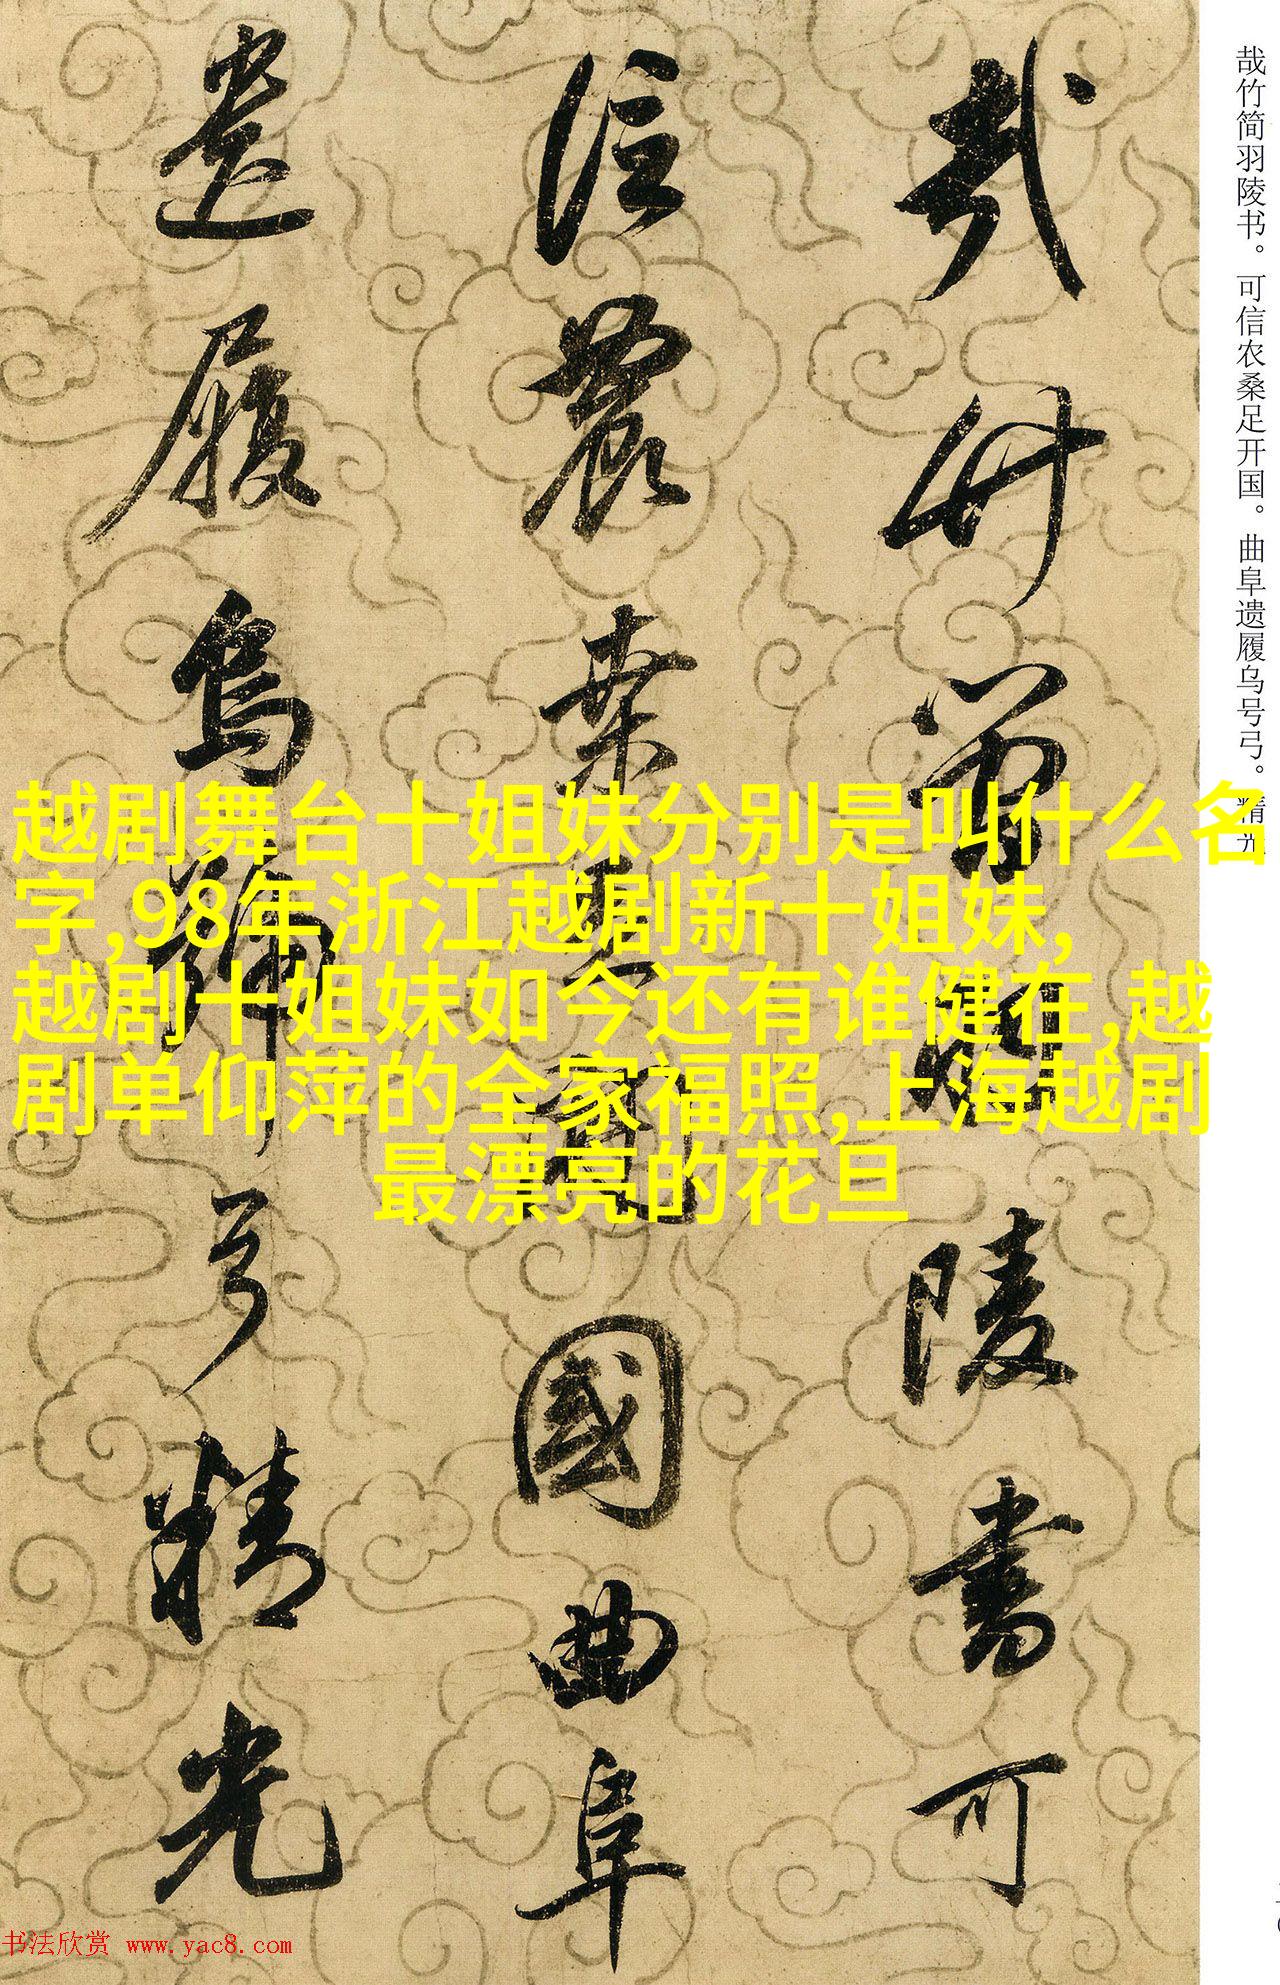 哉竹简羽陵书。可信农桑足开国。曲阜遗履乌号弓。精光
哉竹簡羽陵書可
信農桒足開國曲阜
遺履烏號弓精光
越剧舞台十姐妹分别是叫什么名
字,98年浙江越剧新十姐妹,
越剧十姐妹如今还有谁健在,越
剧单仰萍的全家福照,上海越剧
最漂亮的花旦
书法欣赏 www.yac8.com